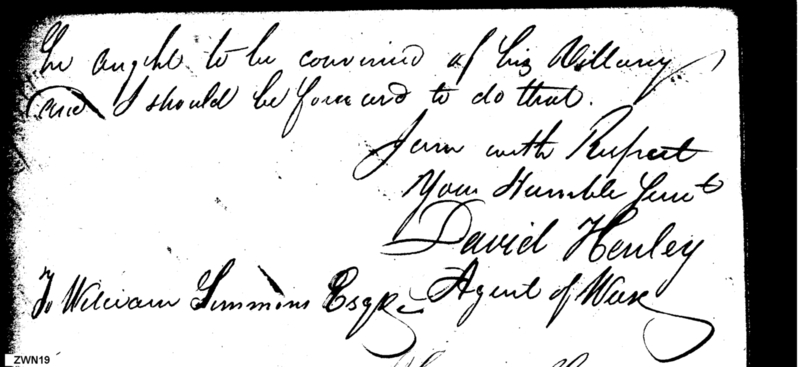 he ought to be convinced of his Villany
and I should be forward to do that.
I am with Respect
Your Humble Servt
David Henley
Agent of War
To William Simmons Esqre
ZWN19